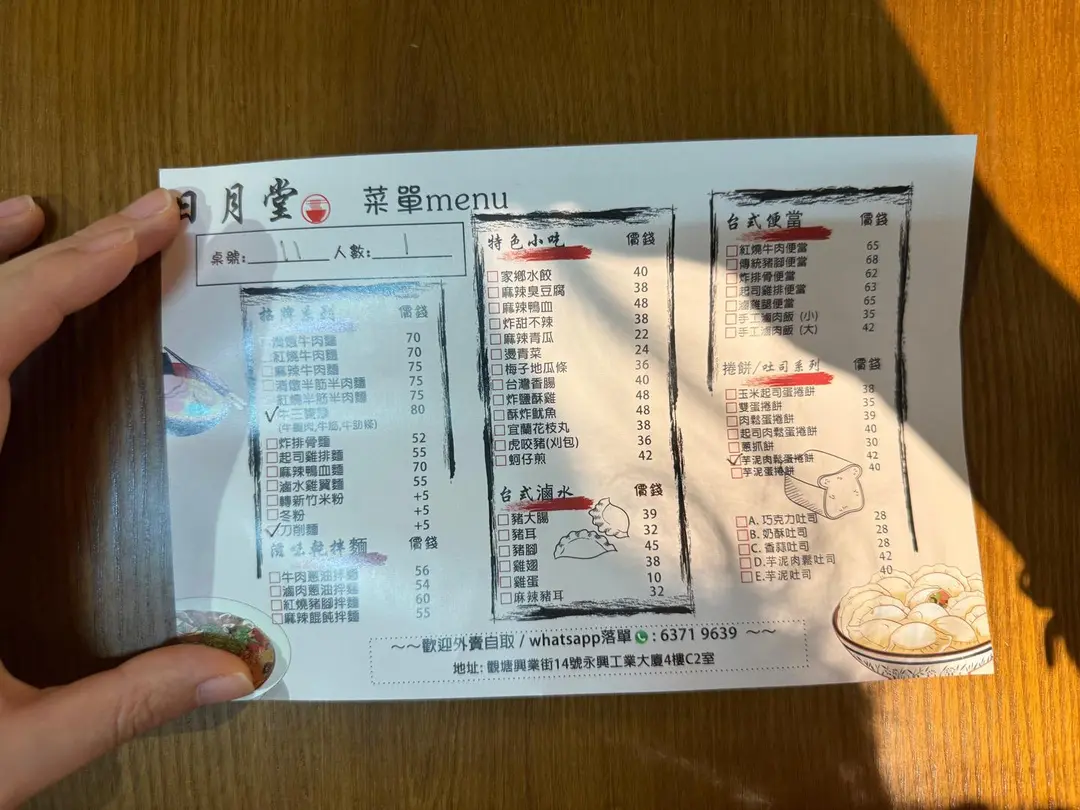 日月堂
菜單menu
桌號: 11 人數: 1
招牌系列 價錢
清燉牛肉麵 70
紅燒牛肉麵 70
麻辣牛肉麵 75
清燉半筋半肉麵 75
紅燒半筋半肉麵 75
牛三寶麵 80
炸排骨麵 52
起司雞排麵 55
麻辣鴨血麵 70
滷水雞翼麵 55
轉新竹米粉 +5
冬粉 +5
刀削麵 +5
滋味乾拌麵 價錢
牛肉蔥油拌麵 56
滷肉蔥油拌麵 54
紅燒豬腳拌麵 60
麻辣餛飩拌麵 55
特色小吃 價錢
家鄉水餃 40
麻辣臭豆腐 38
麻辣鴨血 48
炸甜不辣 38
麻辣青瓜 22
燙青菜 24
梅子地瓜條 36
台灣香腸 40
炸鹽酥雞 48
酥炸魷魚 48
宜蘭花枝丸 38
虎咬豬(刈包) 36
蚵仔煎 42
台式滷水 價錢
豬大腸 39
豬耳 32
豬腳 45
雞翅 38
雞蛋 10
麻辣豬耳 32
台式便當 價錢
紅燒牛肉便當 65
傳統豬腳便當 68
炸排骨便當 62
起司雞排便當 63
滷雞腿便當 65
手工滷肉飯 (小) 35
手工滷肉飯 (大) 42
捲餅/吐司系列 價錢
玉米起司蛋捲餅 38
雙蛋捲餅 35
肉鬆蛋捲餅 39
起司肉鬆蛋捲餅 40
蔥抓餅 30
芋泥肉鬆蛋捲餅 42
芋泥蛋捲餅 40
A. 巧克力吐司 28
B. 奶酥吐司 28
C. 香蒜吐司 28
D.芋泥肉鬆吐司 42
E.芋泥吐司 40
~~歡迎外賣自取 / whatsapp落單 : 6371 9639 ~~
地址: 觀塘興業街14號永興工業大廈4樓C2室